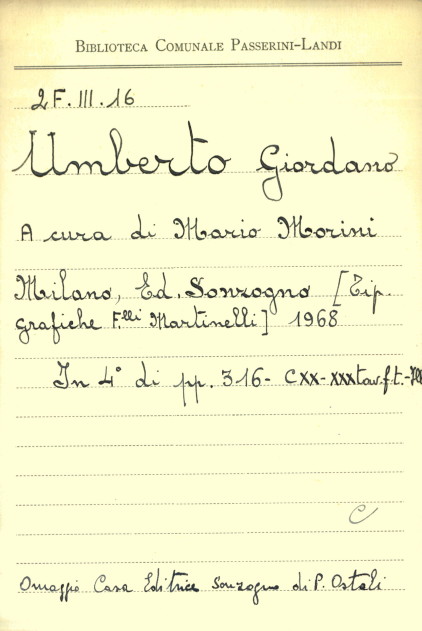 BIBLIOTECA COMUNALE PASSERINI-LANDI
2F.III.16
Umberto Giordano
A cura di Mario Morini
Milano, Ed. Sonzogno [Tip.
Grafiche F.lli Martinelli] 1968
In 4° di pp. 316- CXX-XXXtav.f.t.-
C
Omaggio Casa Editrice Sonzogno di P. Ostali